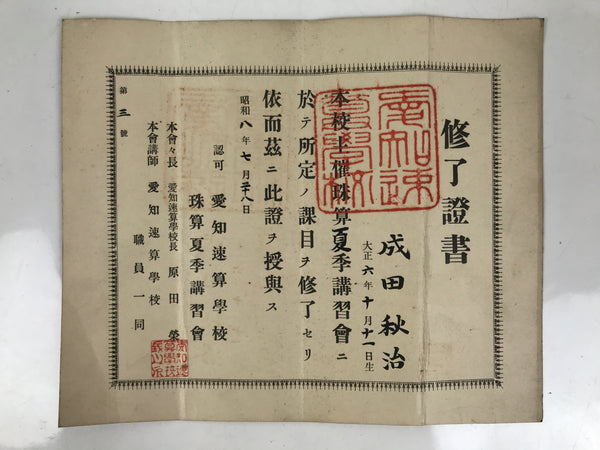 修了證書
成田秋治
大正六年十月十一日生
本校主催珠算夏季講習會ニ
於テ所定ノ課目ヲ修了セリ
依而茲ニ此證ヲ授與ス
昭和八年七月廿八日
認可 愛知速算學校
珠算夏季講習會
本會々長 愛知速算學校長 原田榮
本會講師 愛知速算學校
職員一同
第三號
愛知速算學校